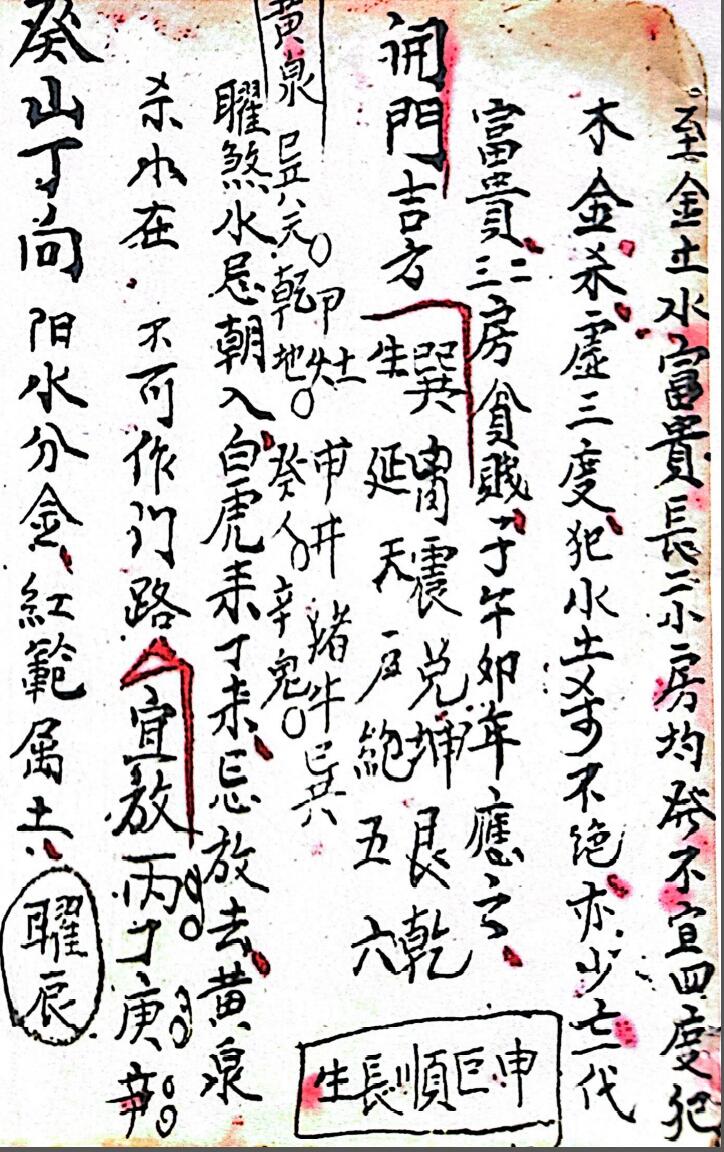 至金土水富貴長二小房均發不宜四度犯
木金杀虛三度犯水土 不絕亦少亡一代
富貴三二房貧賤子午卯年應之
開門吉方
巽 震兌坤艮乾
生延天 絕五六
申巳順長生
甲灶 井 猪牛巳共
黄泉 乾地 癸人 辛鬼
曜煞水忌朝入白虎耒丁未忌放去黄泉
杀水在 不可作门路 宜放丙丁庚辛
癸山丁向 阳水分金 紅範属土
曜辰